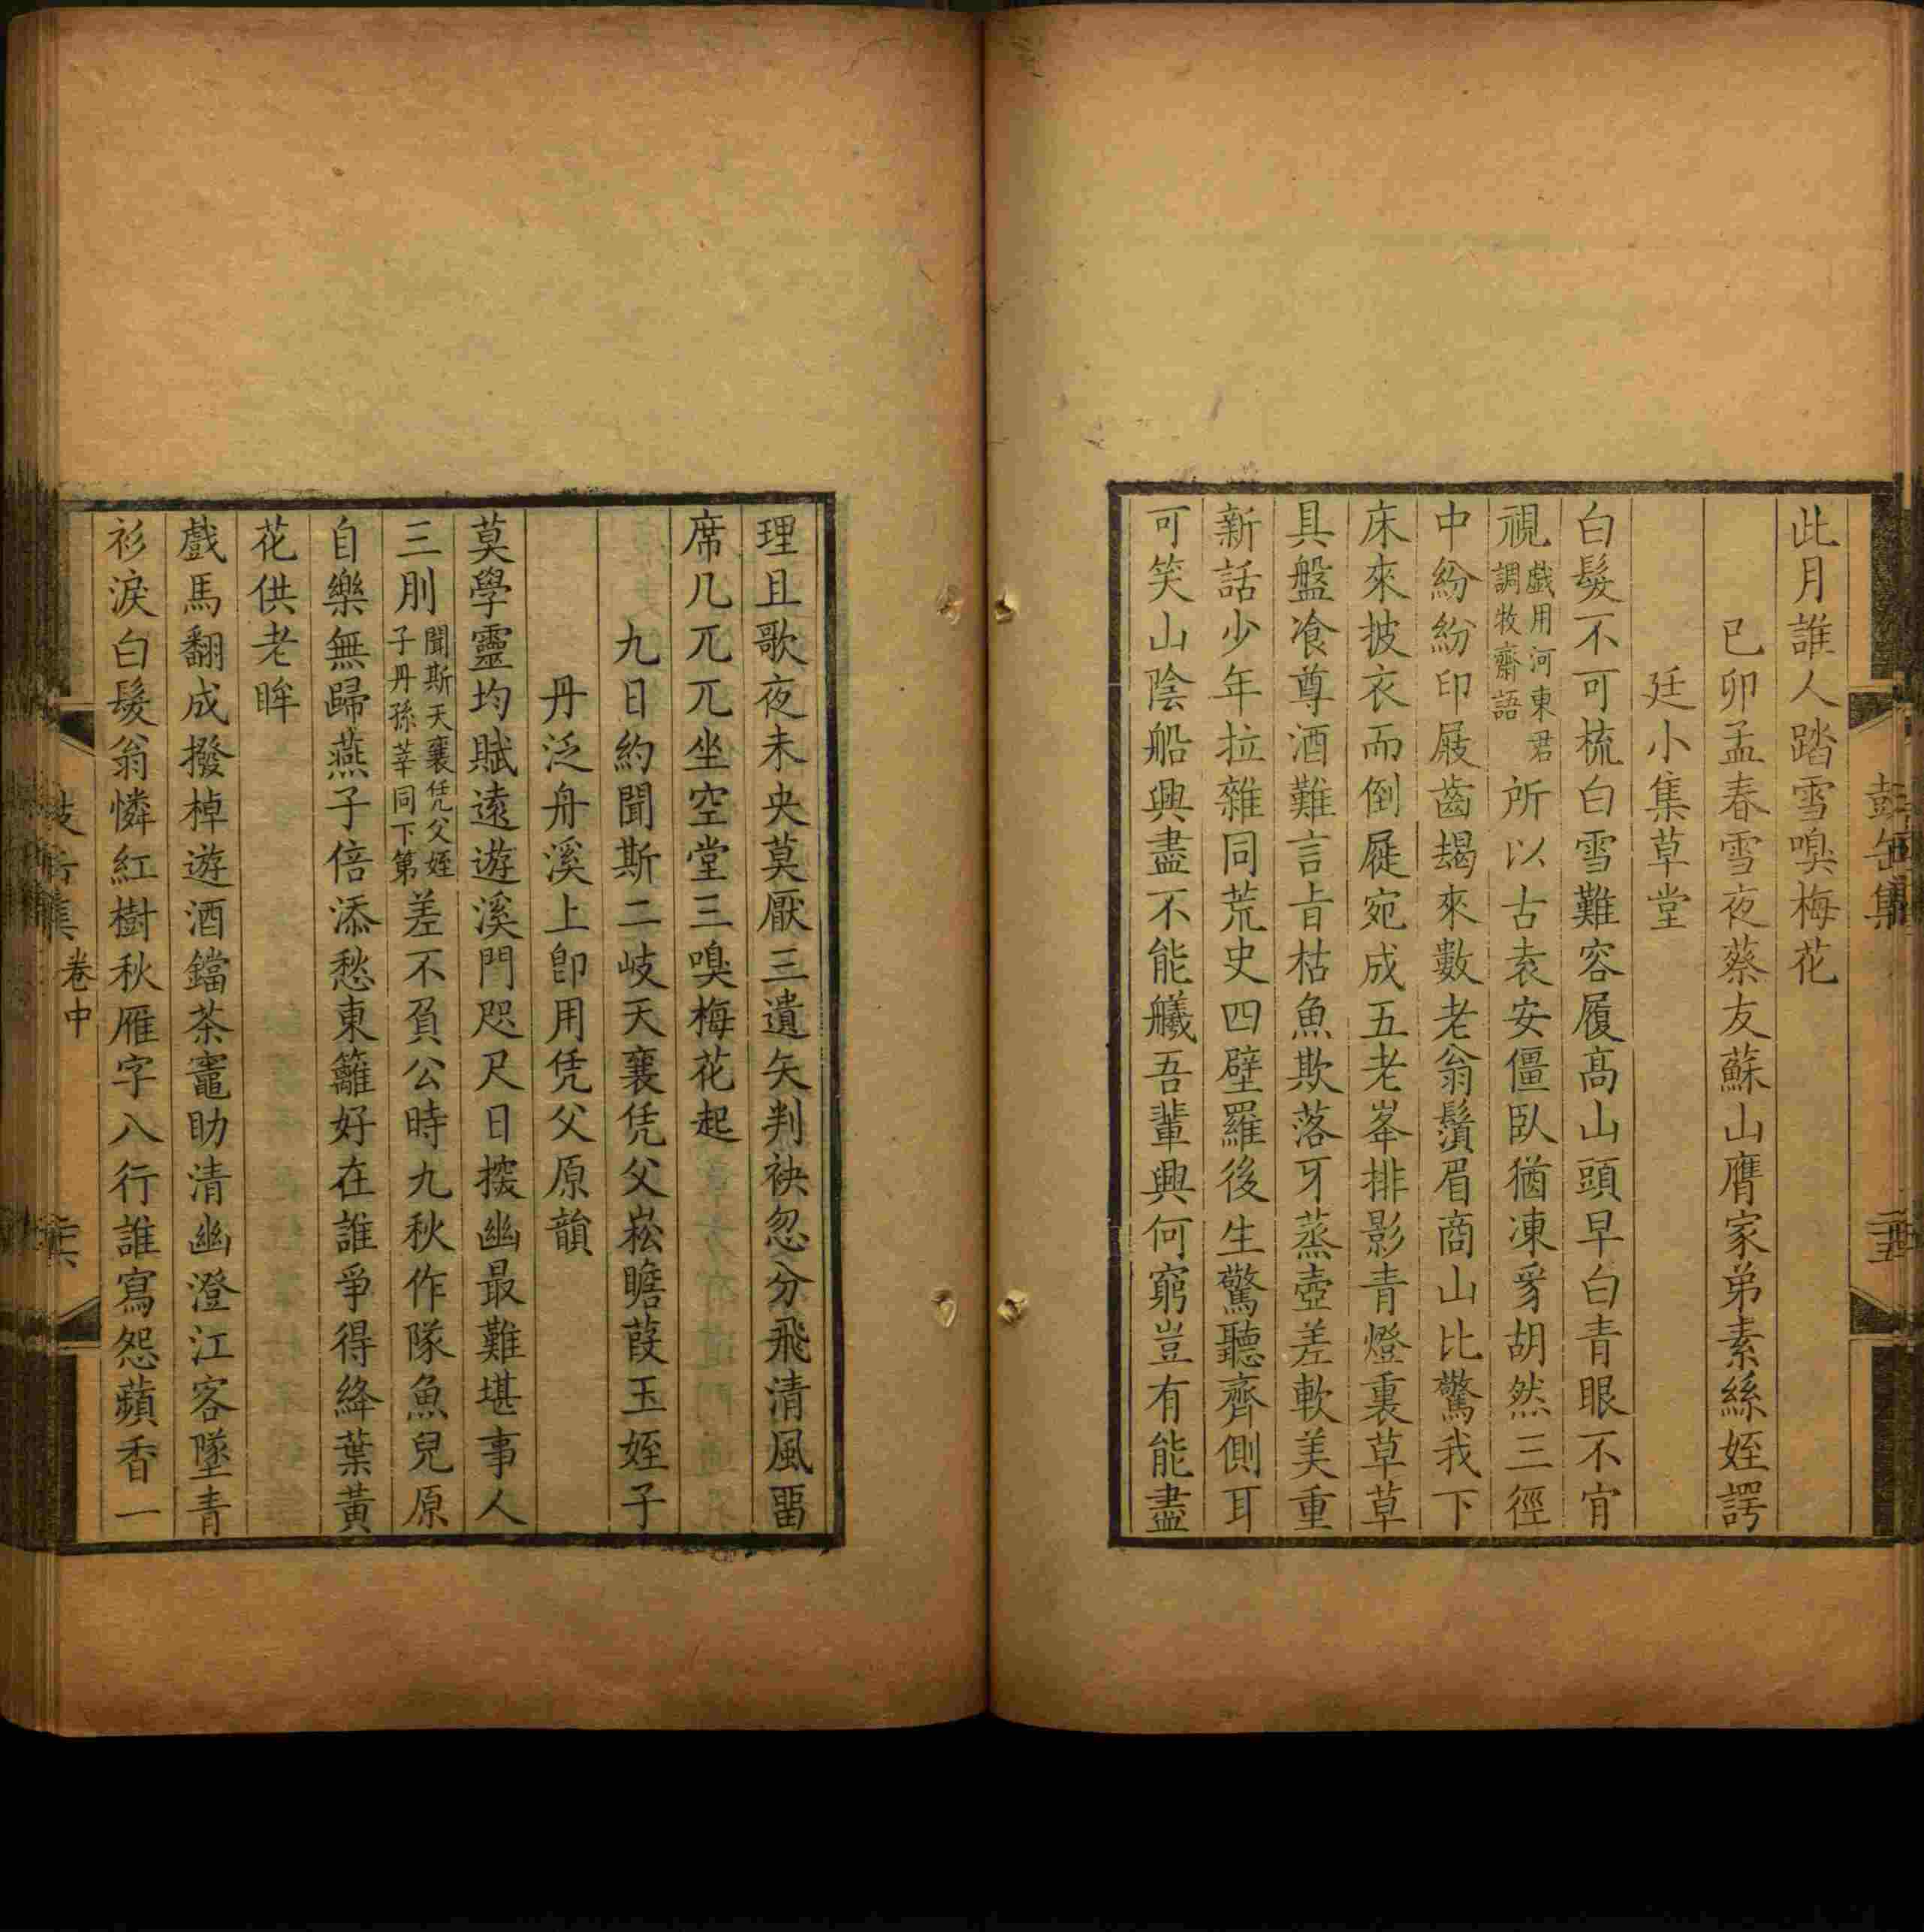 此月誰人踏雪嗅梅花
己卯孟春雪夜蔡友蘇山膺家弟素絲姪諤
廷小集草堂
白髮不可梳白雪難容履高山頭早白青眼不肯
視戲用河東君調牧齋語所以古袁安僵臥猶凍豸胡然三徑
中紛紛印屐齒朅來數老翁鬚眉商山比驚我下
床來披衣而倒屣宛成五老峯排影青燈裏草草
具盤飡尊酒難言旨枯魚欺落牙蒸壺差軟美重
新話少年拉雜同荒史四壁羅後生驚聽齊側耳
可笑山陰船興盡不能艤吾輩興何窮豈有能盡
理且歌夜未央莫厭三遺矢判袂忽分飛清風畱
席几兀兀坐空堂三嗅梅花起
九日約聞斯二岐天襄凭父崧瞻葭玉姪子
丹泛舟溪上卽用凭父原韻
莫學靈均賦遠遊溪門咫尺日搜幽最難堪事人
三刖聞斯天襄凭父姪子丹孫莘同下第差不負公時九秋作隊魚兒原
自樂無歸燕子倍添愁東籬好在誰爭得絳葉黃
花供老眸
戲馬翻成撥棹遊酒鐺茶竈助清幽澄江客墜青
衫淚白髮翁憐紅樹秋雁字八行誰寫怨蘋香一
卷中